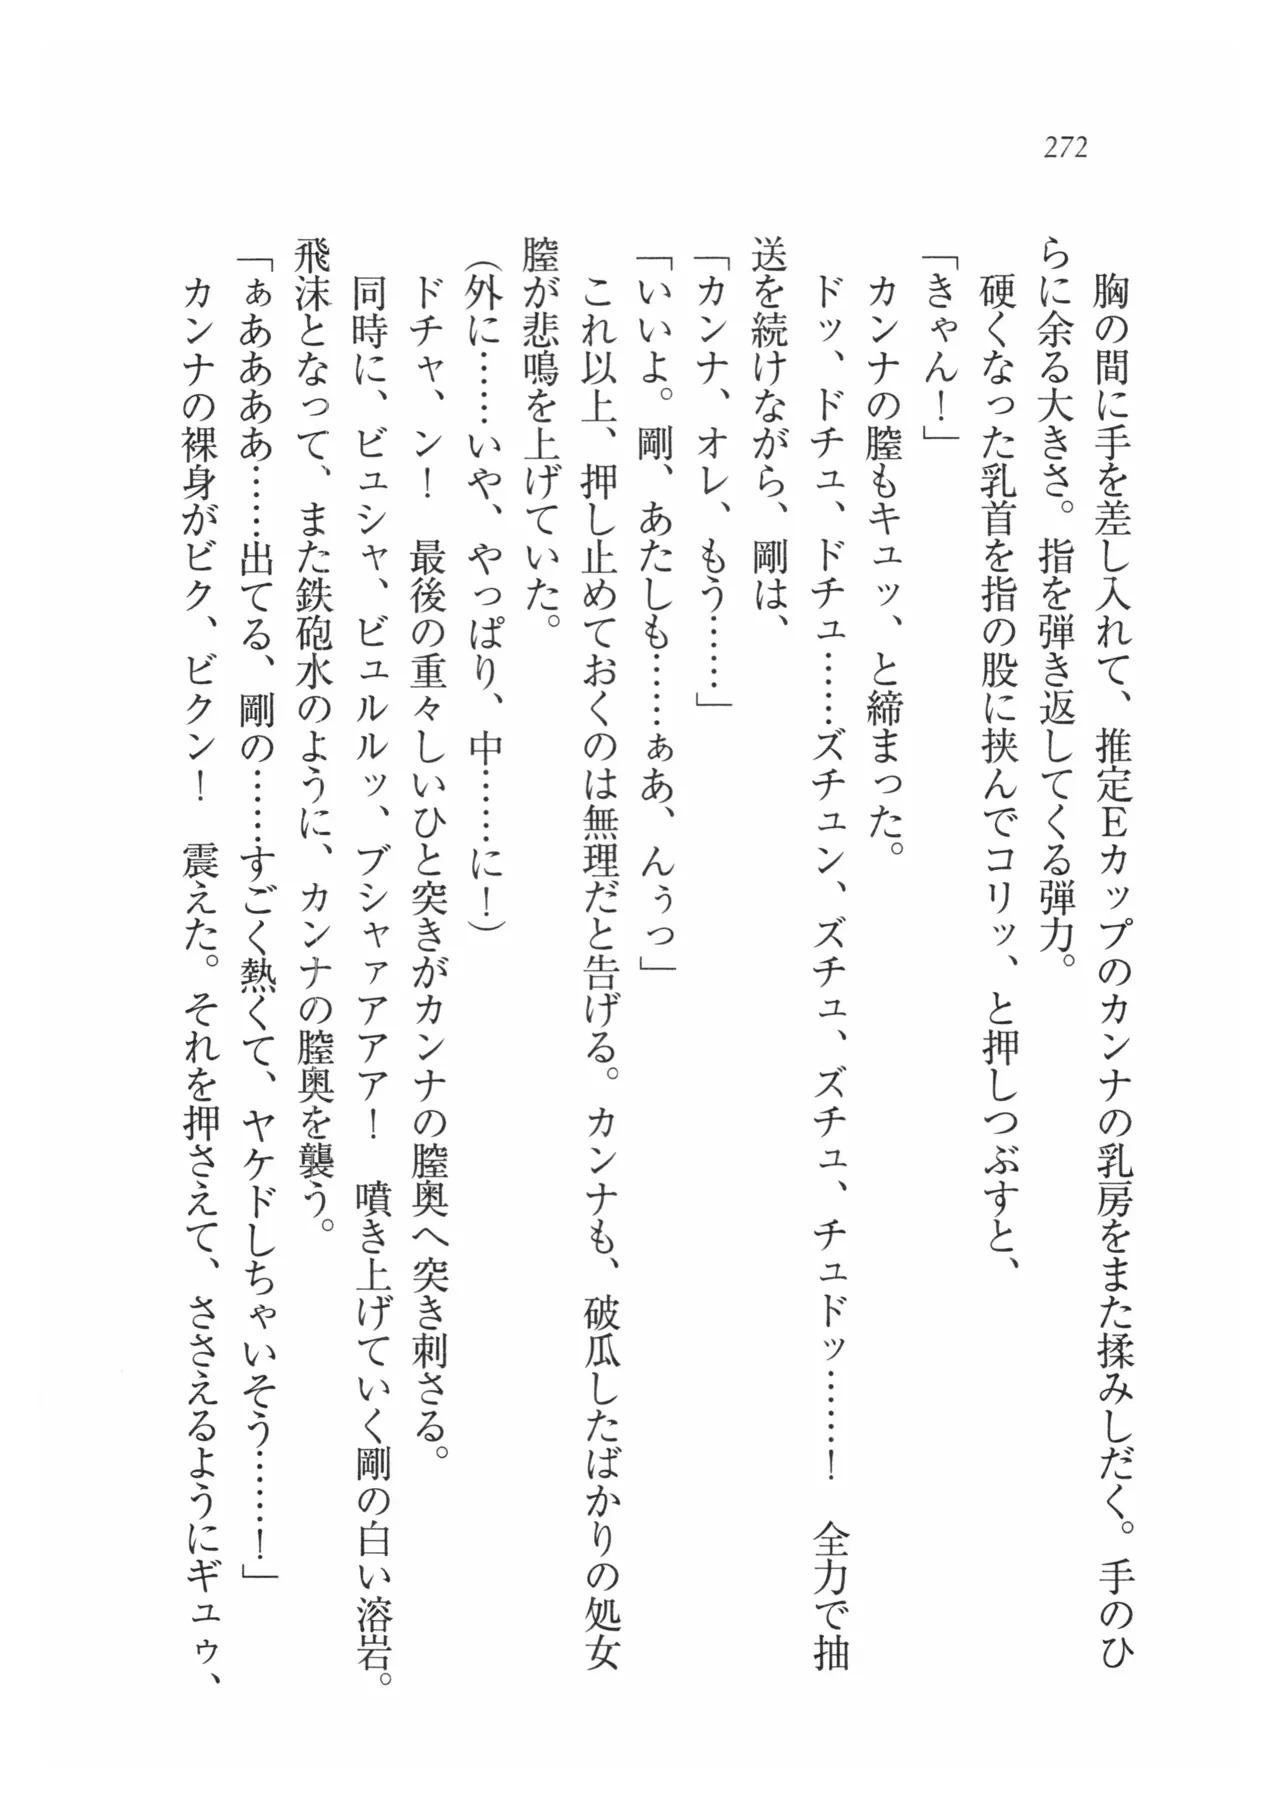 272
胸の間に手を差し入れて、推定Eカップのカンナの乳房をまた揉みしだく。手のひ
らに余る大きさ。指を弾き返してくる弾力。
硬くなった乳首を指の股に挟んでコリッ、と押しつぶすと、
「きゃん！」
カンナの膣もキュッ、と締まった。
ドッ、ドチュ、ドチュ……ズチュン、ズチュ、ズチュ、チュドッ……！　全力で抽
送を続けながら、剛は、
「カンナ、オレ、もう……」
「いいよ。剛、あたしも……ぁあ、んぅっ」
これ以上、押し止めておくのは無理だと告げる。カンナも、破瓜したばかりの処女
膣が悲鳴を上げていた。
（外に……いや、やっぱり、中……に！）
ドチャ、ン！　最後の重々しいひと突きがカンナの膣奥へ突き刺さる。
同時に、ビュシャ、ビュルルッ、ブシャァアアア！　噴き上げていく剛の白い溶岩。
飛沫となって、また鉄砲水のように、カンナの膣奥を襲う。
「ぁああああ……出てる、剛の……すごく熱くて、ヤケドしちゃいそう……！」
カンナの裸身がビク、ビクン！　震えた。それを押さえて、ささえるようにギュゥ、